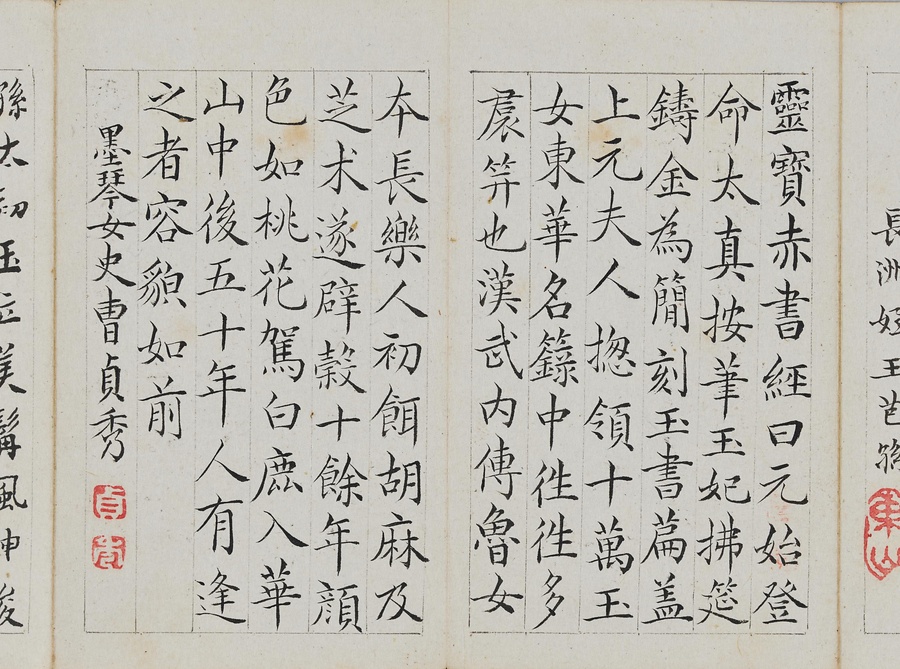 長洲姪王芑孫
東山
靈寶赤書經曰元始登
命太真按筆玉妃拂筵
鑄金為簡刻玉書篇盖
上元夫人揔領十萬玉
女東華名籙中徃徃多
裠笄也漢武内傳魯女
本長樂人初餌胡麻及
芝术遂辟穀十餘年顔
色如桃花駕白鹿入華
山中後五十年人有逢
之者容貌如前
墨琴女史曹貞秀
貞秀
孫太初玉立美髯風神俊